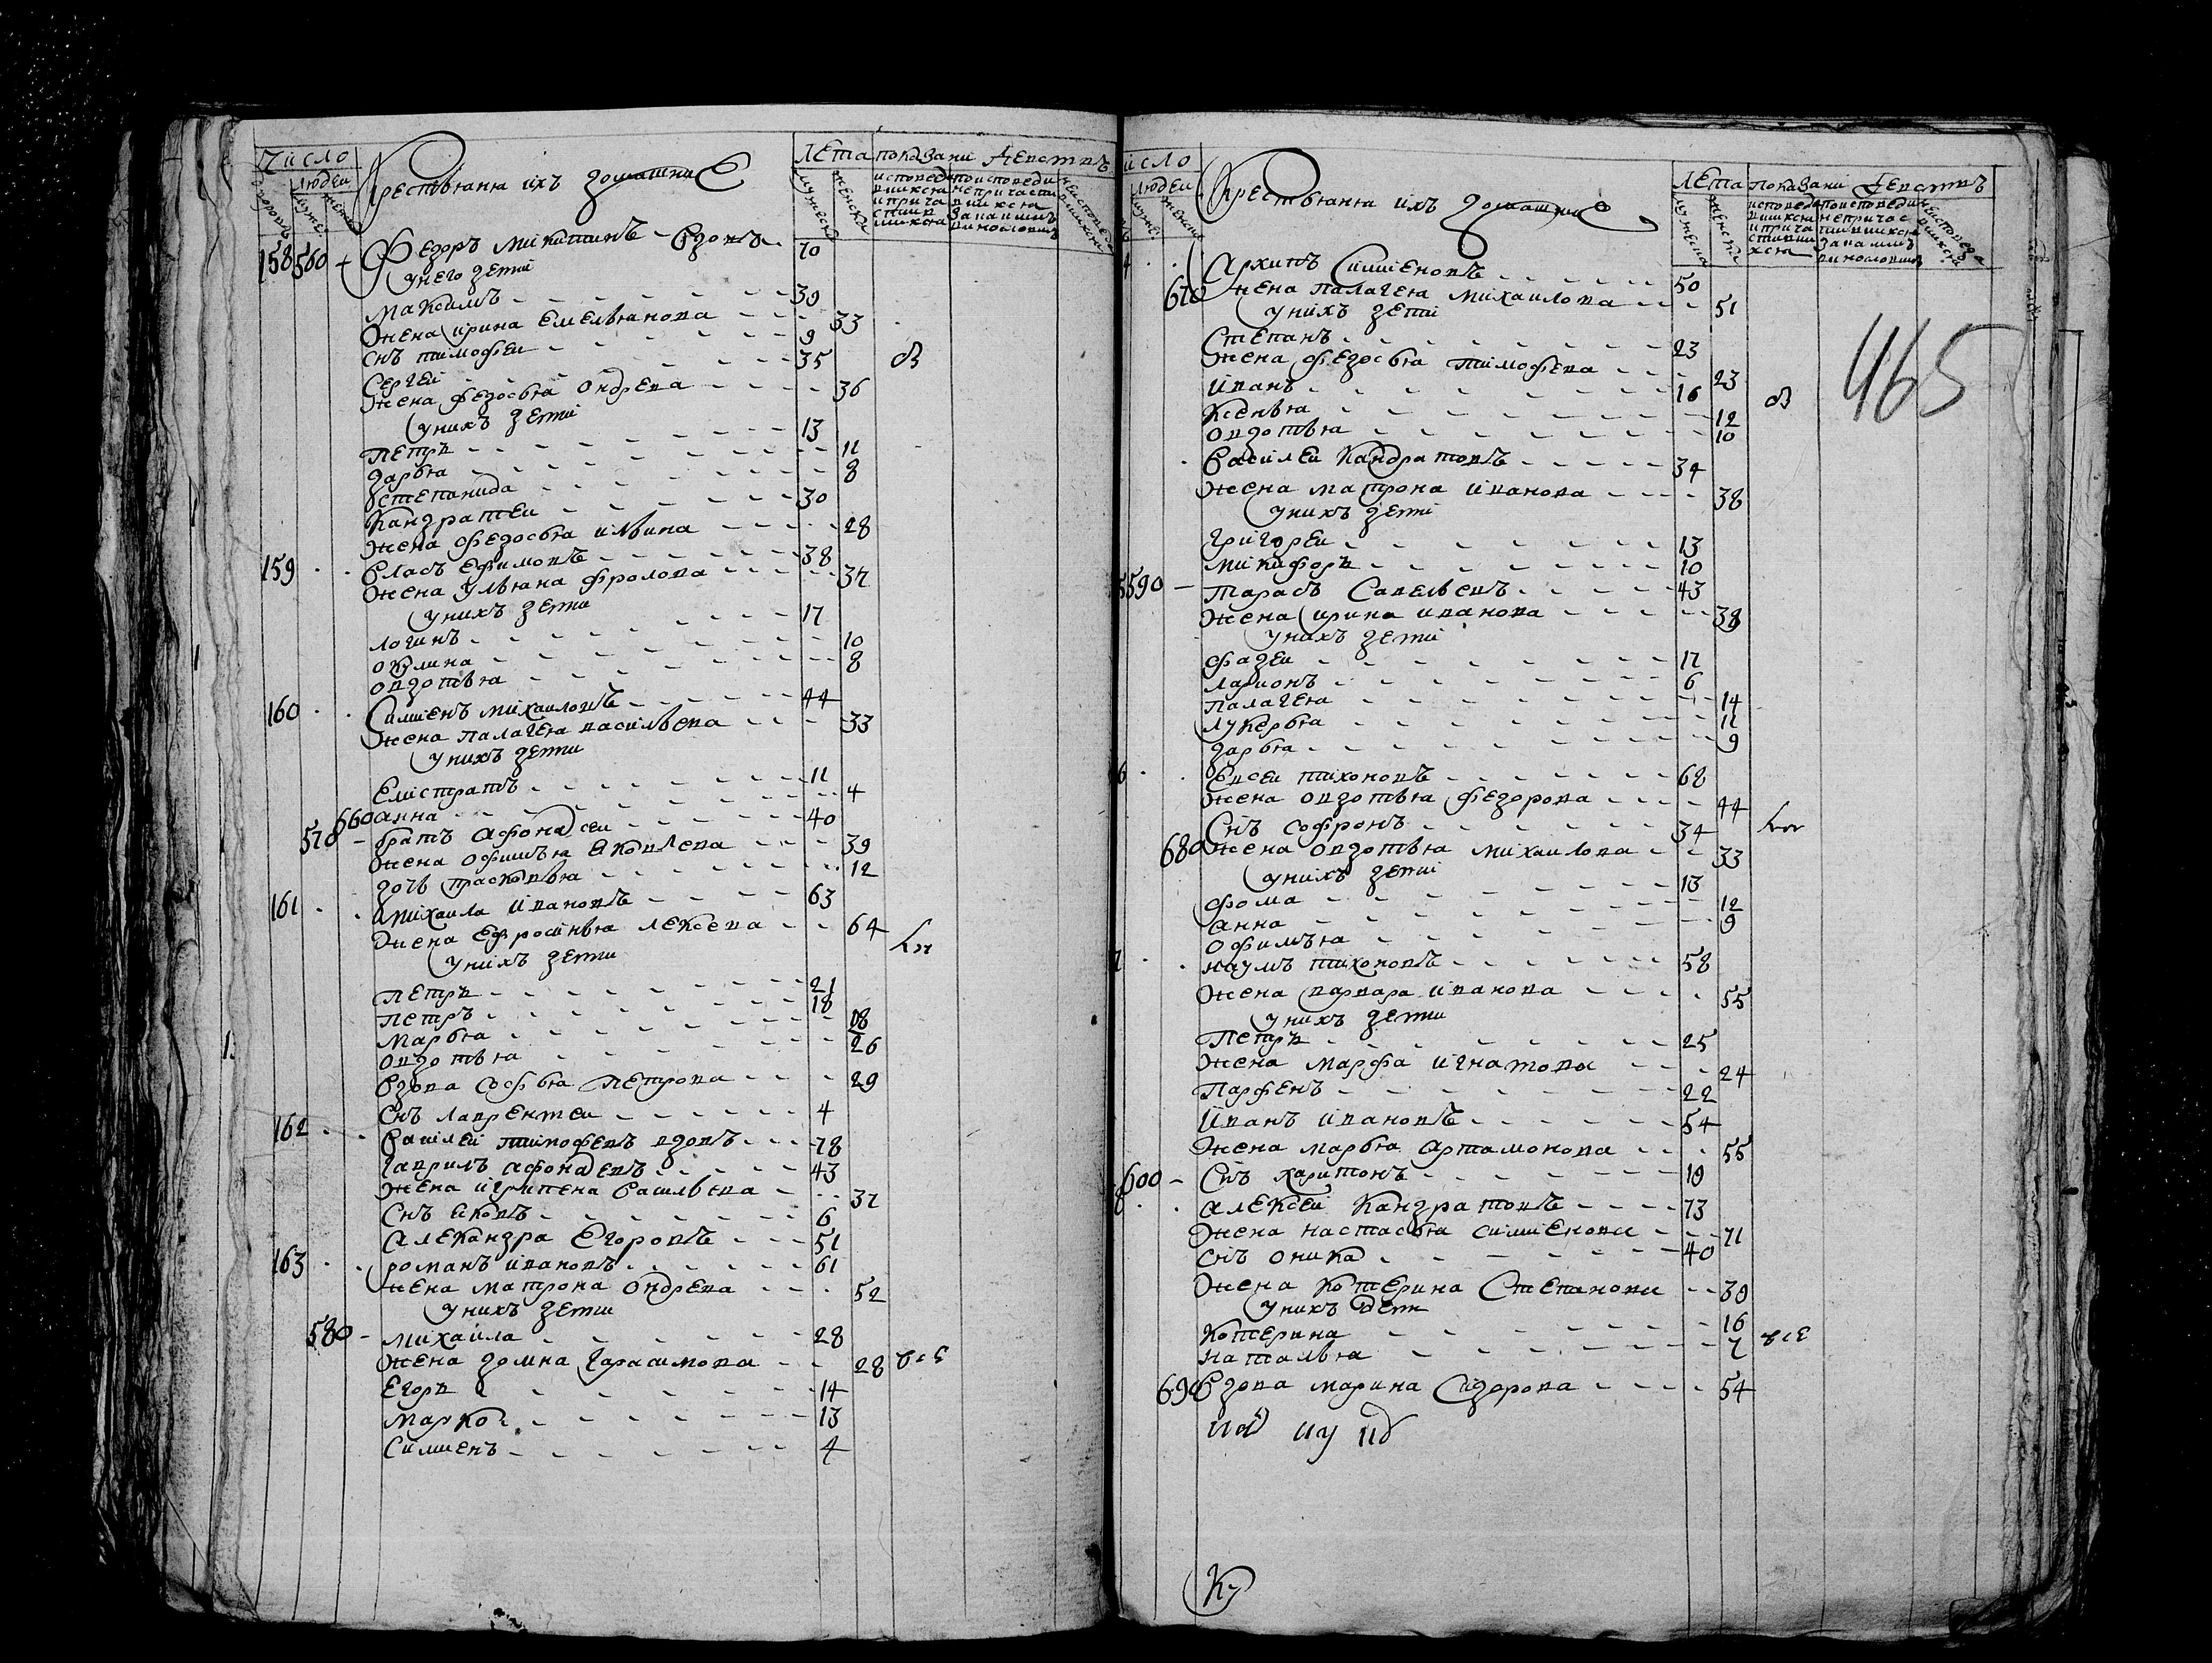 Число
Людеи
Крестьяня ихъ домашние
Лета показани действъ
исповедывшихся и причастившихся
по исповеди не причастившихся за каимъ винословиемъ
не исповедавшихся
158 560 Федоръ Микитинъ вдовъ 70
у него дети
Максимъ 39
Жена ирина Емельянова 33
снъ тимофеи 9
Сергеи 35
Жена федосья Ондрева 36
у нихъ дети
Петръ 13
дарья 11
степанида 8
Кандратеи 30
Жена федосья ильина 28
159 Власъ Ефимовъ 38
Жена ульяна фролова 37
у нихъ дети
логинъ 17
окулина 10
овдотья 8
160 Симиенъ михаиловъ 44
Жена палагея васильева 33
у нихъ дети
Елистратъ 11
660 анна 4
570 братъ афонасеи 40
Жена офимья яковлева 39
дочь прасковья 12
161 михаила ивановъ 63
Жена Ефросинья лексева 64
у нихъ дети
петръ 21
петръ 18
марья 18
овдотья 26
вдова софья петрова 29
снъ лаврентеи 4
162 василеи тимофевъ вдовъ 78
гаврилъ афонасевъ 43
Жена игрипена васильева 37
снъ яковъ 6
александра Егоровъ 51
163 романъ ивановъ 61
Жена матрона ондрева 52
у нихъ дети
580 михаила 28
Жена домна гарасимова 28 все
Егоръ 14
марко 13
Симиенъ 4
исло
Людеи
Крестьяня ихъ домашние
Лета показани действъ
4 Архипъ Симиеновъ 50
670 Жена палагея михаилова 51
у нихъ дети
Степанъ 23
Жена федосья тимофева 23
иванъ 16
Ксенья 12
овдотья 10
василеи Кандратовъ 34
Жена матрона иванова 38
у нихъ дети
григореи 13
микифоръ 10
5 590 тарасъ Савельевъ 43
Жена ирина иванова 38
у нихъ дети
фадеи 17
ларионъ 6
палагея 14
лукерья 11
дарья 9
6 Евсеи тихоновъ 68
Жена овдотья федорова 44
Снъ софронъ 34
680 Жена овдотья михаилова 33
у нихъ дети
фома 13
анна 12
офимья 9
7 наумъ тихоновъ 58
Жена варвара иванова 55
у нихъ дети
Петръ 25
Жена марфа игнатова 24
Парфенъ 22
иванъ ивановъ 54
Жена марья артамонова 55
600 Снъ харитонъ 19
8 алексеи Кандратовъ 73
Жена настасья симиенова 71
снъ оника 40
Жена Котерина Степанова 39
у нихъ дети
Котерина 16
наталья 7 все
690 вдова марина Сидорова 54
465